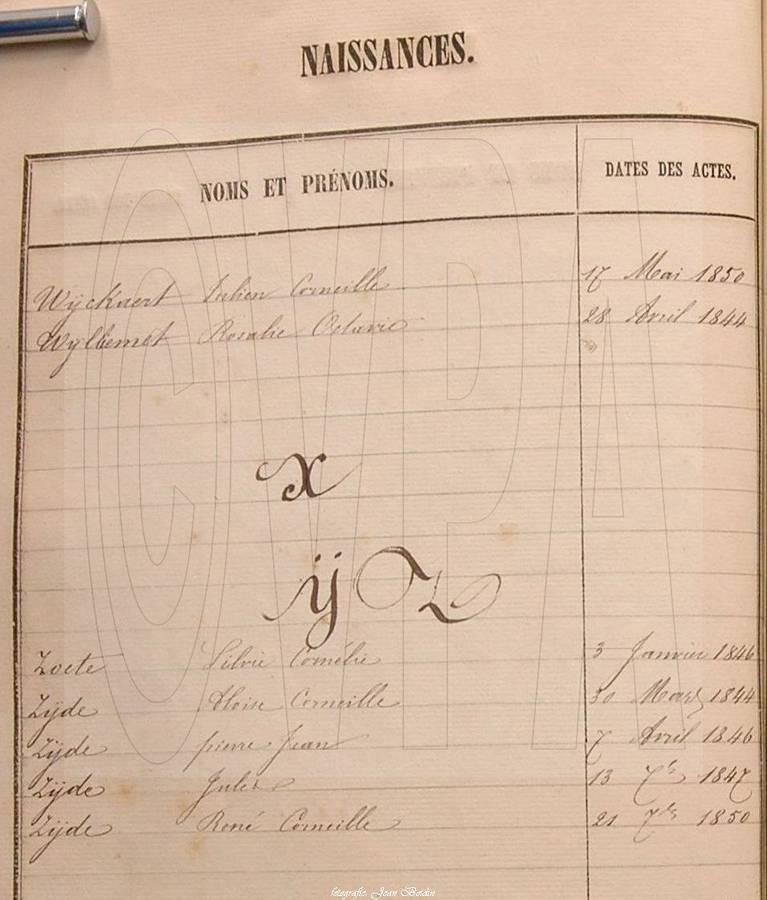 NAISSANCES.
NOMS ET PRÉNOMS. DATES DES ACTES.
Wÿckaert Julien Corneille 17 Mai 1850
Wyllemet Rosalie Octavie 28 Avril 1844
X
ÿ Z
Zoete Silvie Cornélie 3 Janvier 1846
Zÿde Eloise Corneille 30 Mars 1844
Zÿde pierre Jean 7 Avril 1846
Zÿde Jules 13 7bre 1847
Zÿde René Corneille 21 7bre 1850
CVPA
fotografie: Jean Boidin